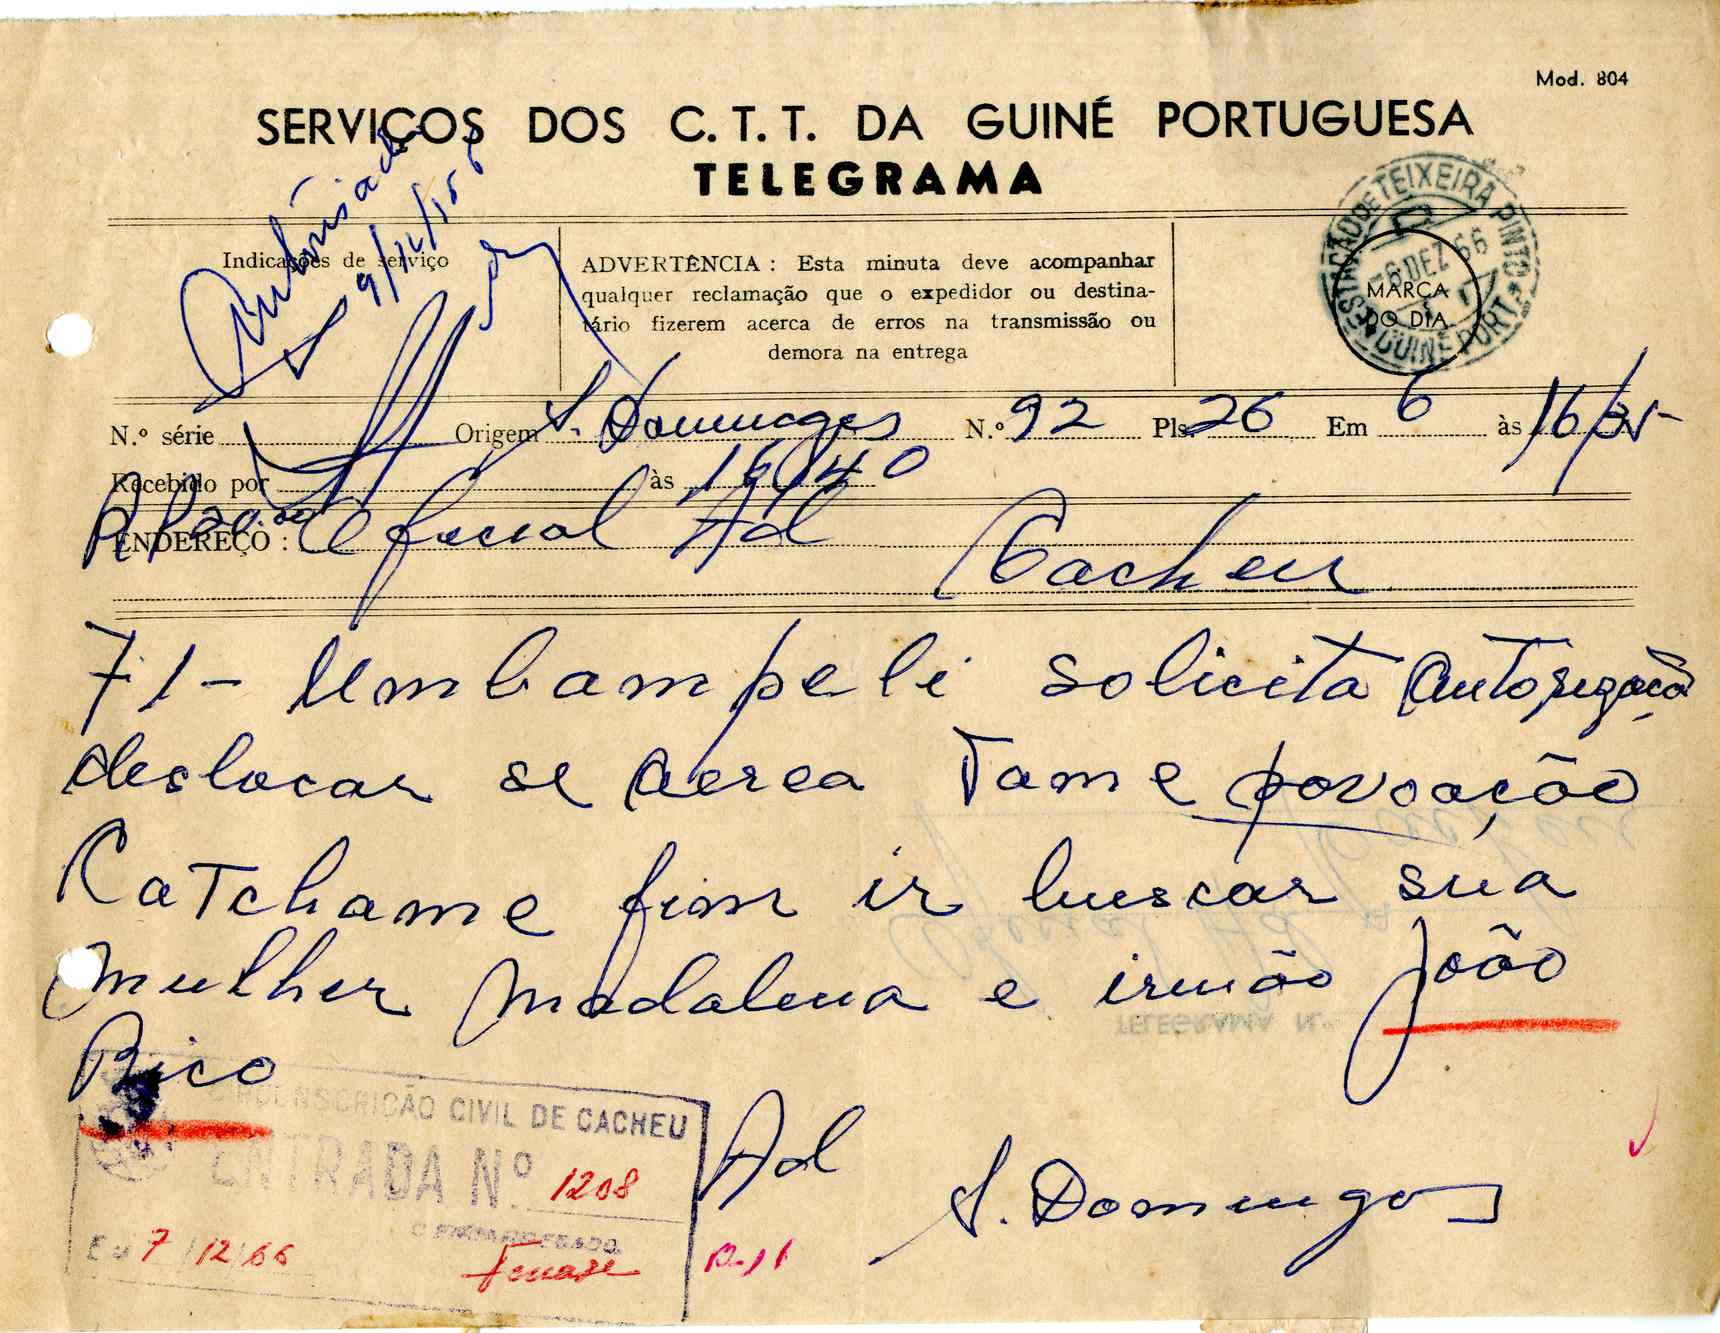 Mod. 804
SERVIÇOS DOS C. T. T. DA GUINÉ PORTUGUESA
TELEGRAMA
Autorisado
9/12/1966
Indicações de serviço
ADVERTÊNCIA : Esta minuta deve acompanhar
qualquer reclamação que o expedidor ou destina-
tário fizerem acerca de erros na transmissão ou
demora na entrega
ESTAÇÃO DE TEIXEIRA PINTO
6 DEZ 66
GUINÉ PORT.
MARCA
DO DIA
N.º série Origem S. Domingos N.º 92 Pls. 26 Em 6 às 16/35
Recebido por às 16/40
ENDEREÇO : Oficial Ad
Cacheu
71 - Umbampeli solicita autorização
deslocar se aerea Tame povoação
Catchame fim ir buscar sua
mulher Madalena e irmão João
Bico
TELEGRAMA N.º
Ad
S. Domingos
CIRCUNSCRIÇÃO CIVIL DE CACHEU
ENTRADA Nº 1208
O ENCARREGADO
Em 7/12/66